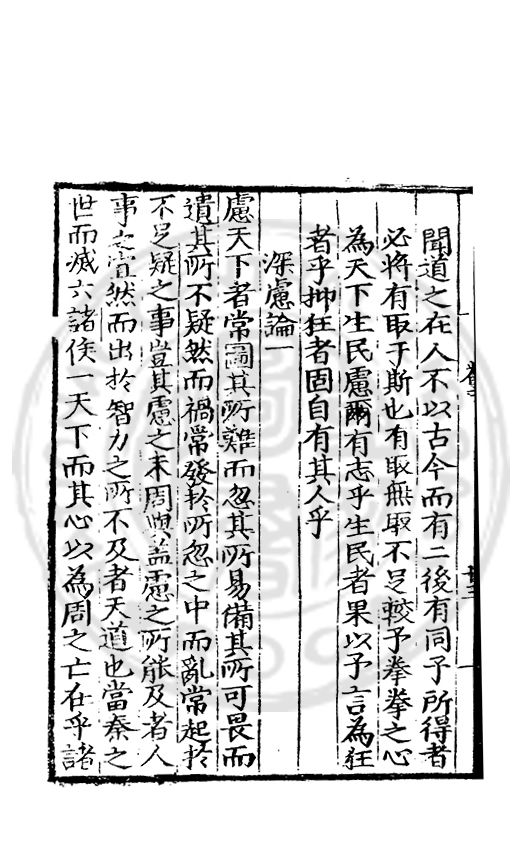 聞道之在人不以古今而有二後有同予所得者
必将有取于斯也有取無取不足較予拳拳之心
為天下生民慮爾有志乎生民者果以予言為狂
者乎抑狂者固自有其人乎
深慮論一
慮天下者常圖其所難而忽其所易備其所可畏而
遺其所不疑然而禍常發扵所忽之中而亂常起扵
不足疑之事豈其慮之未周與盖慮之所能及者人
事之宜然而出扵智力之所不及者天道也當秦之
世而滅六諸侯一天下而其心以為周之亡在乎諸